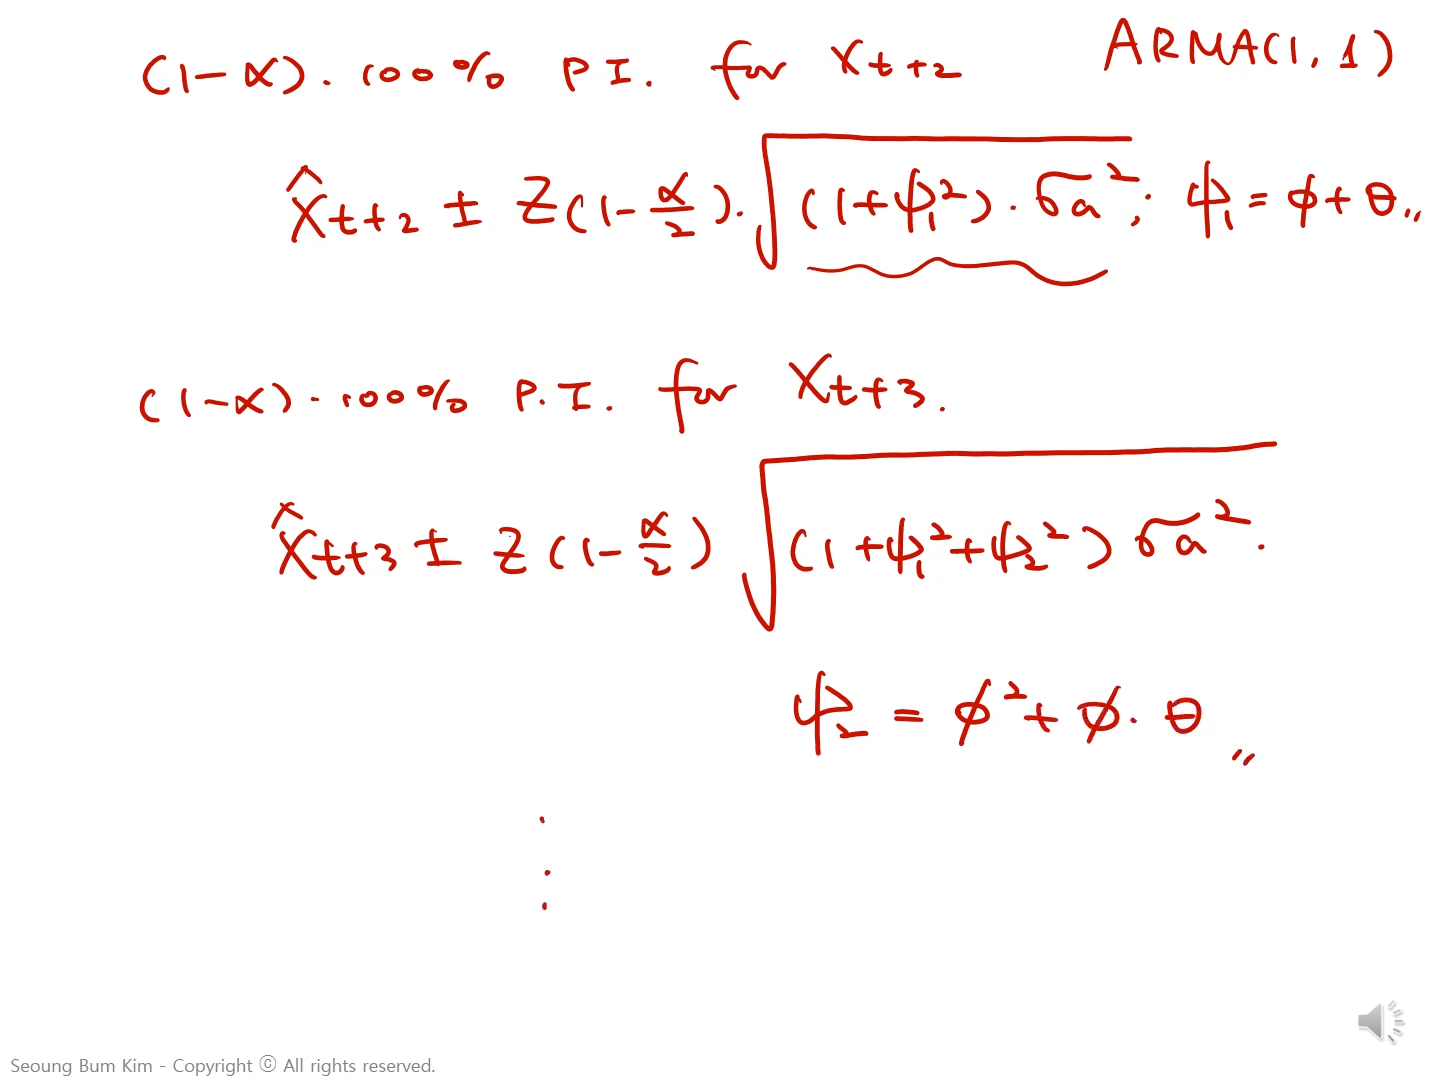 (1-α)·100% P.I. for X_{t+2} ARMA(1,1)
X̂_{t+2} ± Z(1-α/2)·√((1+ψ₁²)·σ_a²); ψ₁ = φ+θ〃
(1-α)·100% P.I. for X_{t+3}.
X̂_{t+3} ± Z(1-α/2) √((1+ψ₁²+ψ₂²)σ_a².
ψ₂ = φ²+φ·θ 〃
⋮
Seoung Bum Kim - Copyright ⓒ All rights reserved.